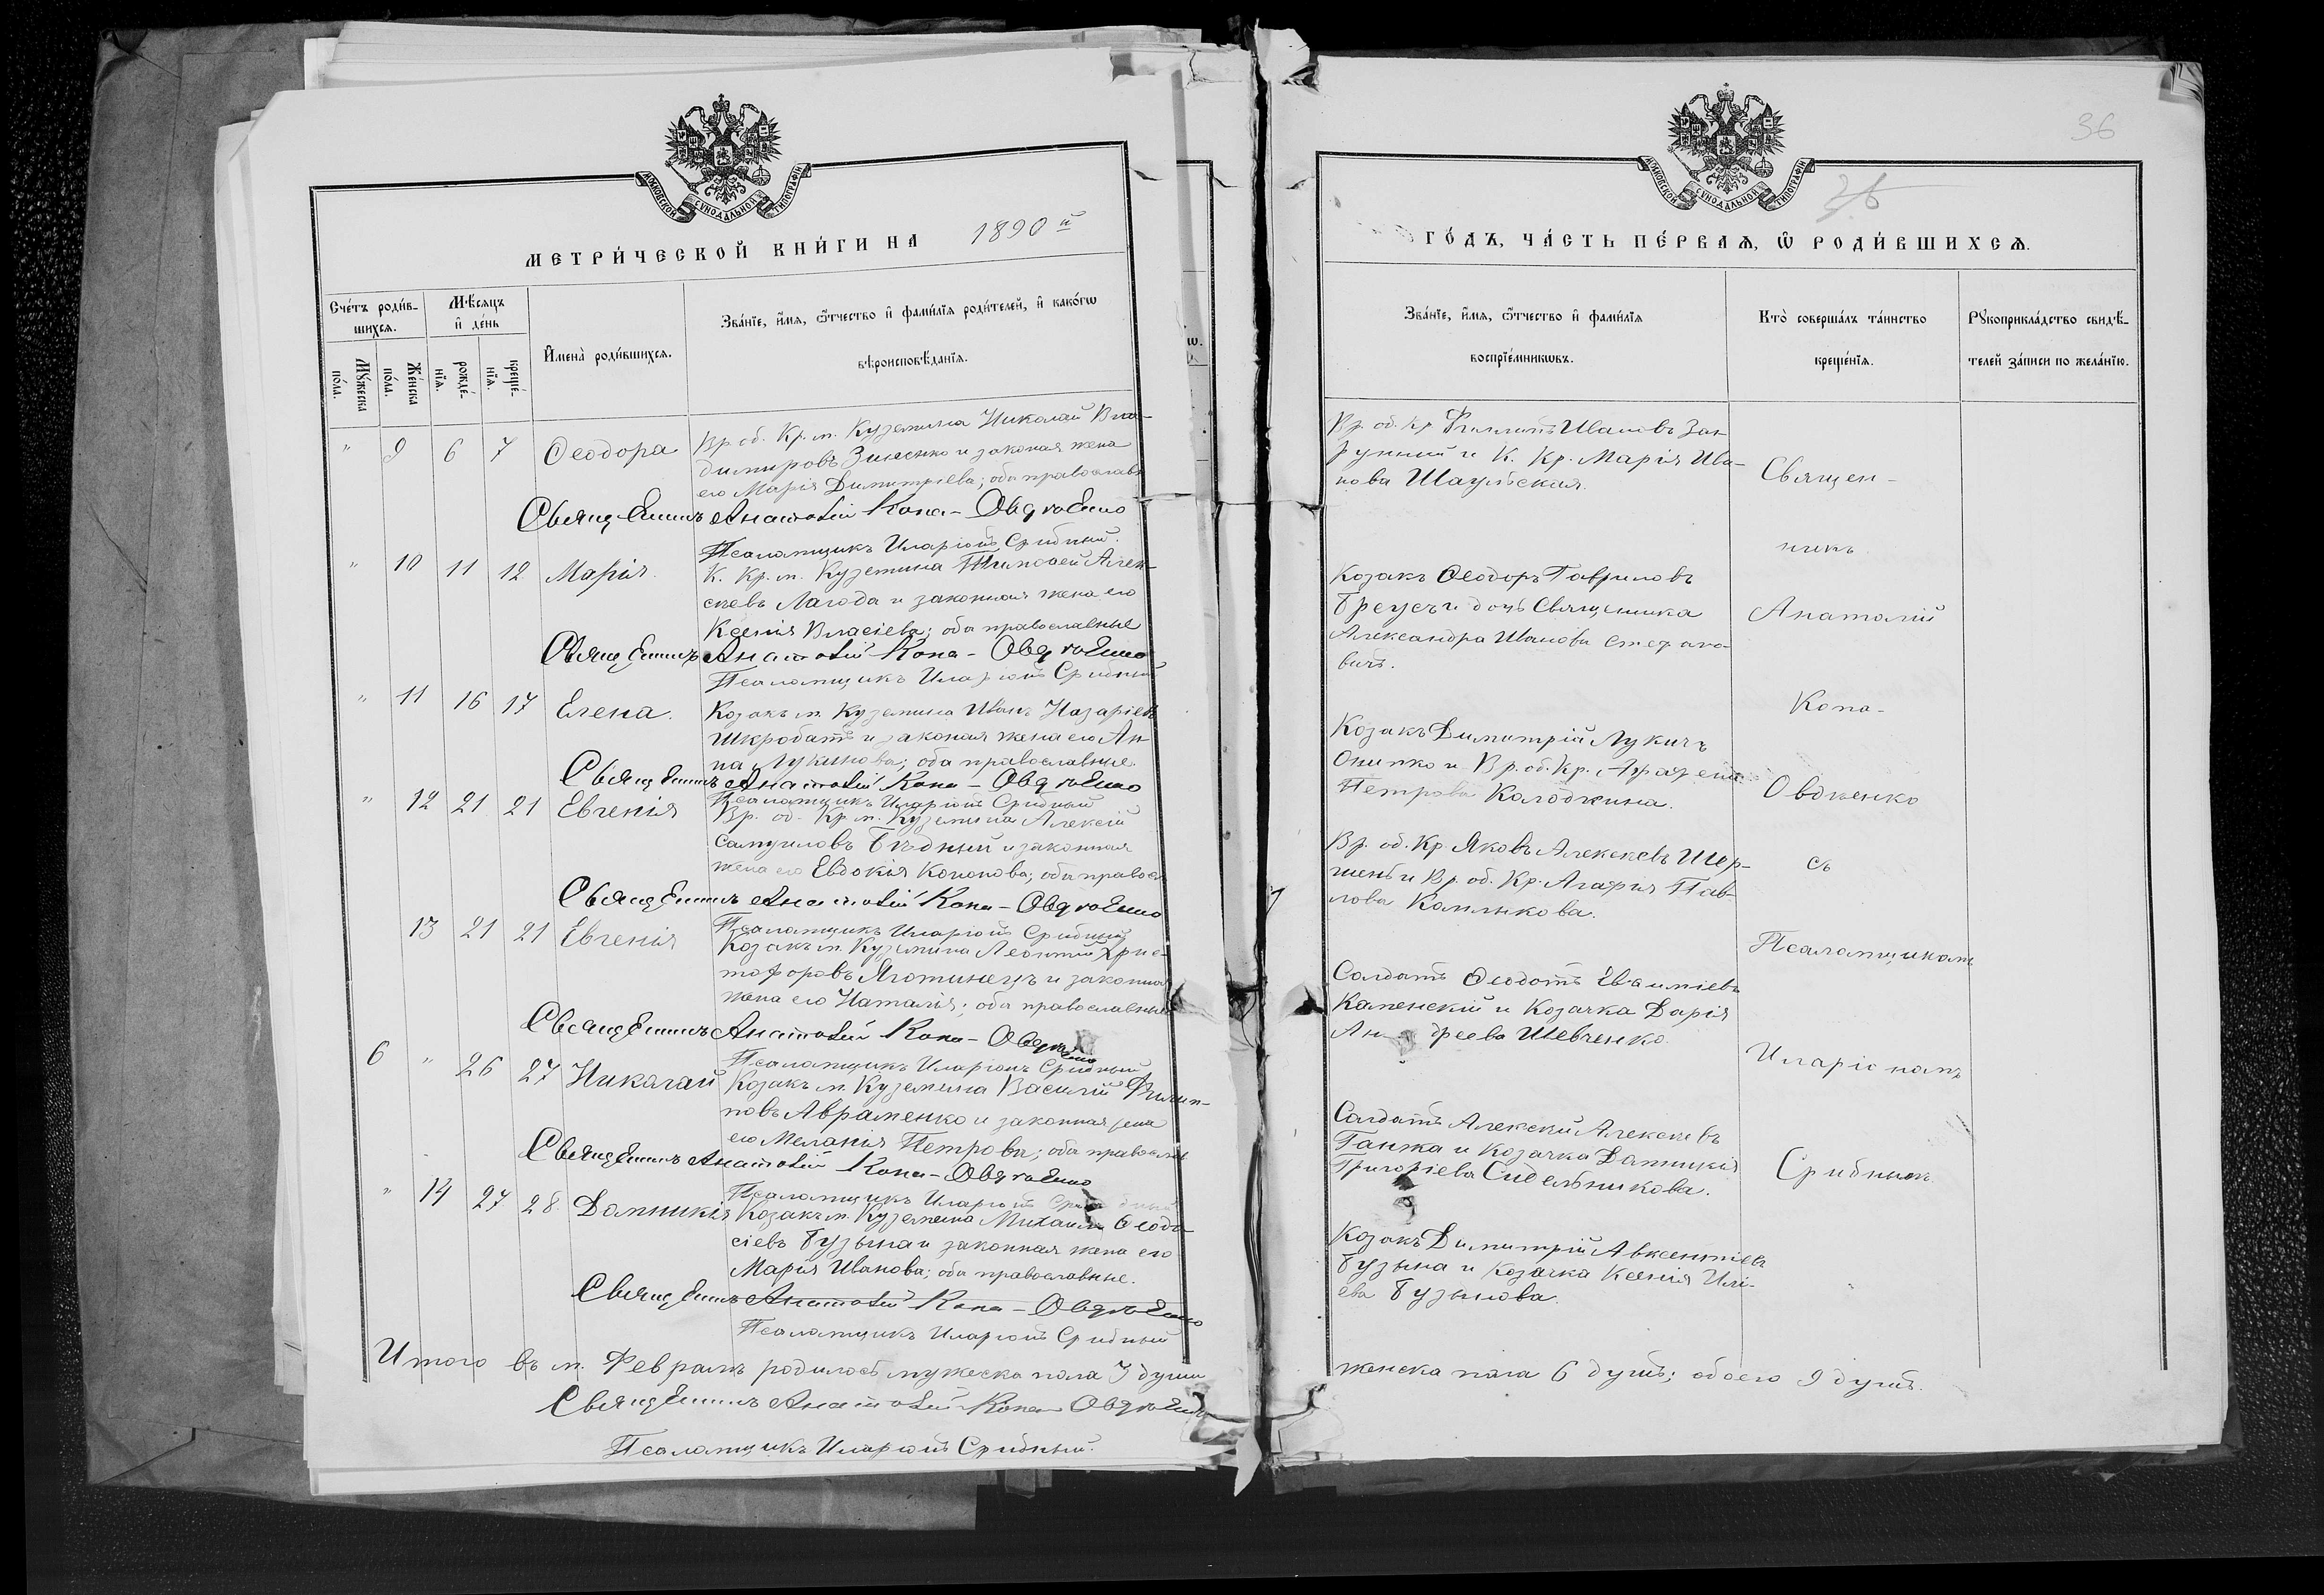 МОСКОВСКОЙ СѴНОДАЛЬНОЙ ТИПОГРАФІИ
МЕТРИ́ЧЕСКОЙ КНИ́ГИ НА 1890 й
Сче́тъ роди́в-
шихсѧ.
Мѣ́сяцъ
и҆ де́нь
Мꙋ́жеска
по́ла.
Же́нска
по́ла.
рожде́-
нїѧ.
креще́-
нїѧ.
И҆мена̀ роди́вшихсѧ.
Зва́нїе, и҆́мѧ, ѻ҆́тчество и҆ фами́лїѧ роди́телей, и҆ како́гѡ
вѣроисповѣ́данїѧ.
" 9 6 7 Ѳеодора Вр. об. Кр. м. Куземина Николай Вла-
димировъ Зиненко и законая жена
его Марія Димитріева; оба православн
Священникъ Анатолій Копа-Овдѣенко
Псаломщикъ Иларіонъ Срибный.
" 10 11 12 Марія. К. Кр. м. Куземина Тимофей Алек-
сѣевъ Лагода и законная жена его
Ксенія Власіева; оба православные
Священникъ Анатолій Копа-Овдѣенко
Псаломщикъ Иларіонъ Срибный
" 11 16 17 Елена. Козакъ м. Куземина Иванъ Назаріевъ
Шкробатъ и законая жена его Ан-
на Лукинова; оба православные.
Священникъ Анатолій Копа-Овдѣенко
Псаломщикъ Иларіонъ Срибный
" 12 21 21 Евгенія Вр. об. Кр. м. Куземина Алексій
Самуиловъ Бѣдный и законная
жена его Евдокія Кононова; оба правосл
Священникъ Анатолій Копа-Овдѣенко
Псаломщикъ Иларіонъ Срибный
13 21 21 Евгенія Козакъ м. Куземина Леонтій Хрис-
тофоровъ Яготинецъ и законная
жена его Наталія; оба православные
Священникъ Анатолій Копа-Овдѣенко
Псаломщикъ Иларіонъ Срибный
6 " 26 27 Николай Козакъ м. Куземина Василій Филип-
повъ Авраменко и законная жена
его Меланія Петрова; оба православн
Священникъ Анатолій Копа-Овдѣенко
Псаломщикъ Иларіонъ Срибный
" 14 27 28 Домникія Козакъ м. Куземина Михаилъ Ѳеодо
сіевъ Бузына и законная жена его
Марія Иванова; оба православные.
Священникъ Анатолій Копа-Овдѣенко
Псаломщикъ Иларіонъ Срибный
Итого въ м. Февралѣ родилось мужеска пола 3 души
Священникъ Анатолій Копа-Овдѣенко
Псаломщикъ Иларіонъ Срибный.
36
МОСКОВСКОЙ СѴНОДАЛЬНОЙ ТИПОГРАФІИ
ГО́ДЪ, ЧА́СТЬ ПЕ́РВАѦ, Ѡ҆ РОДИ́ВШИХСѦ.
Зва́нїе, и҆́мѧ, ѻ҆́тчество и҆ фами́лїѧ
воспрїе́мникѡвъ.
Кто̀ соверша́лъ та́инство
креще́нїѧ.
Рꙋкоприкла́дство свидѣ́-
телей за́писи по жела́нїю.
Вр. об. Кр Филипъ Ивановъ
и К. Кр. Марія Ива-
нова Шаульская.
Козакъ Ѳеодоръ Гавриловъ
Бреусъ и дочь Священника
Александра Иванова Стефано-
вичъ.
Козакъ Димитрій Лукичъ
Онипко и Вр. об. Кр.
Петрова Колодкина.
Вр. об. Кр. Яковъ Алексѣевъ Шер-
шень и Вр. об. Кр. Агафія Пав-
лова Калинкова.
Солдатъ Ѳеодотъ Евфиміевъ
Каменскій и Козачка Дарія
Андреева Шевченко.
Солдатъ Алексѣй Алексѣевъ
Ганжа и Козачка Домникія
Григоріева Сидельникова.
Козакъ Димитрій Авксентіевъ
Бузына и Козачка Ксенія Илі-
ева Бузынова.
Священ-
никъ
Анатолій
Копа-
Овдѣенко
съ
Псаломщикомъ
Иларіономъ
Срибнымъ.
женска пола 6 душъ; обоего 9 душъ.